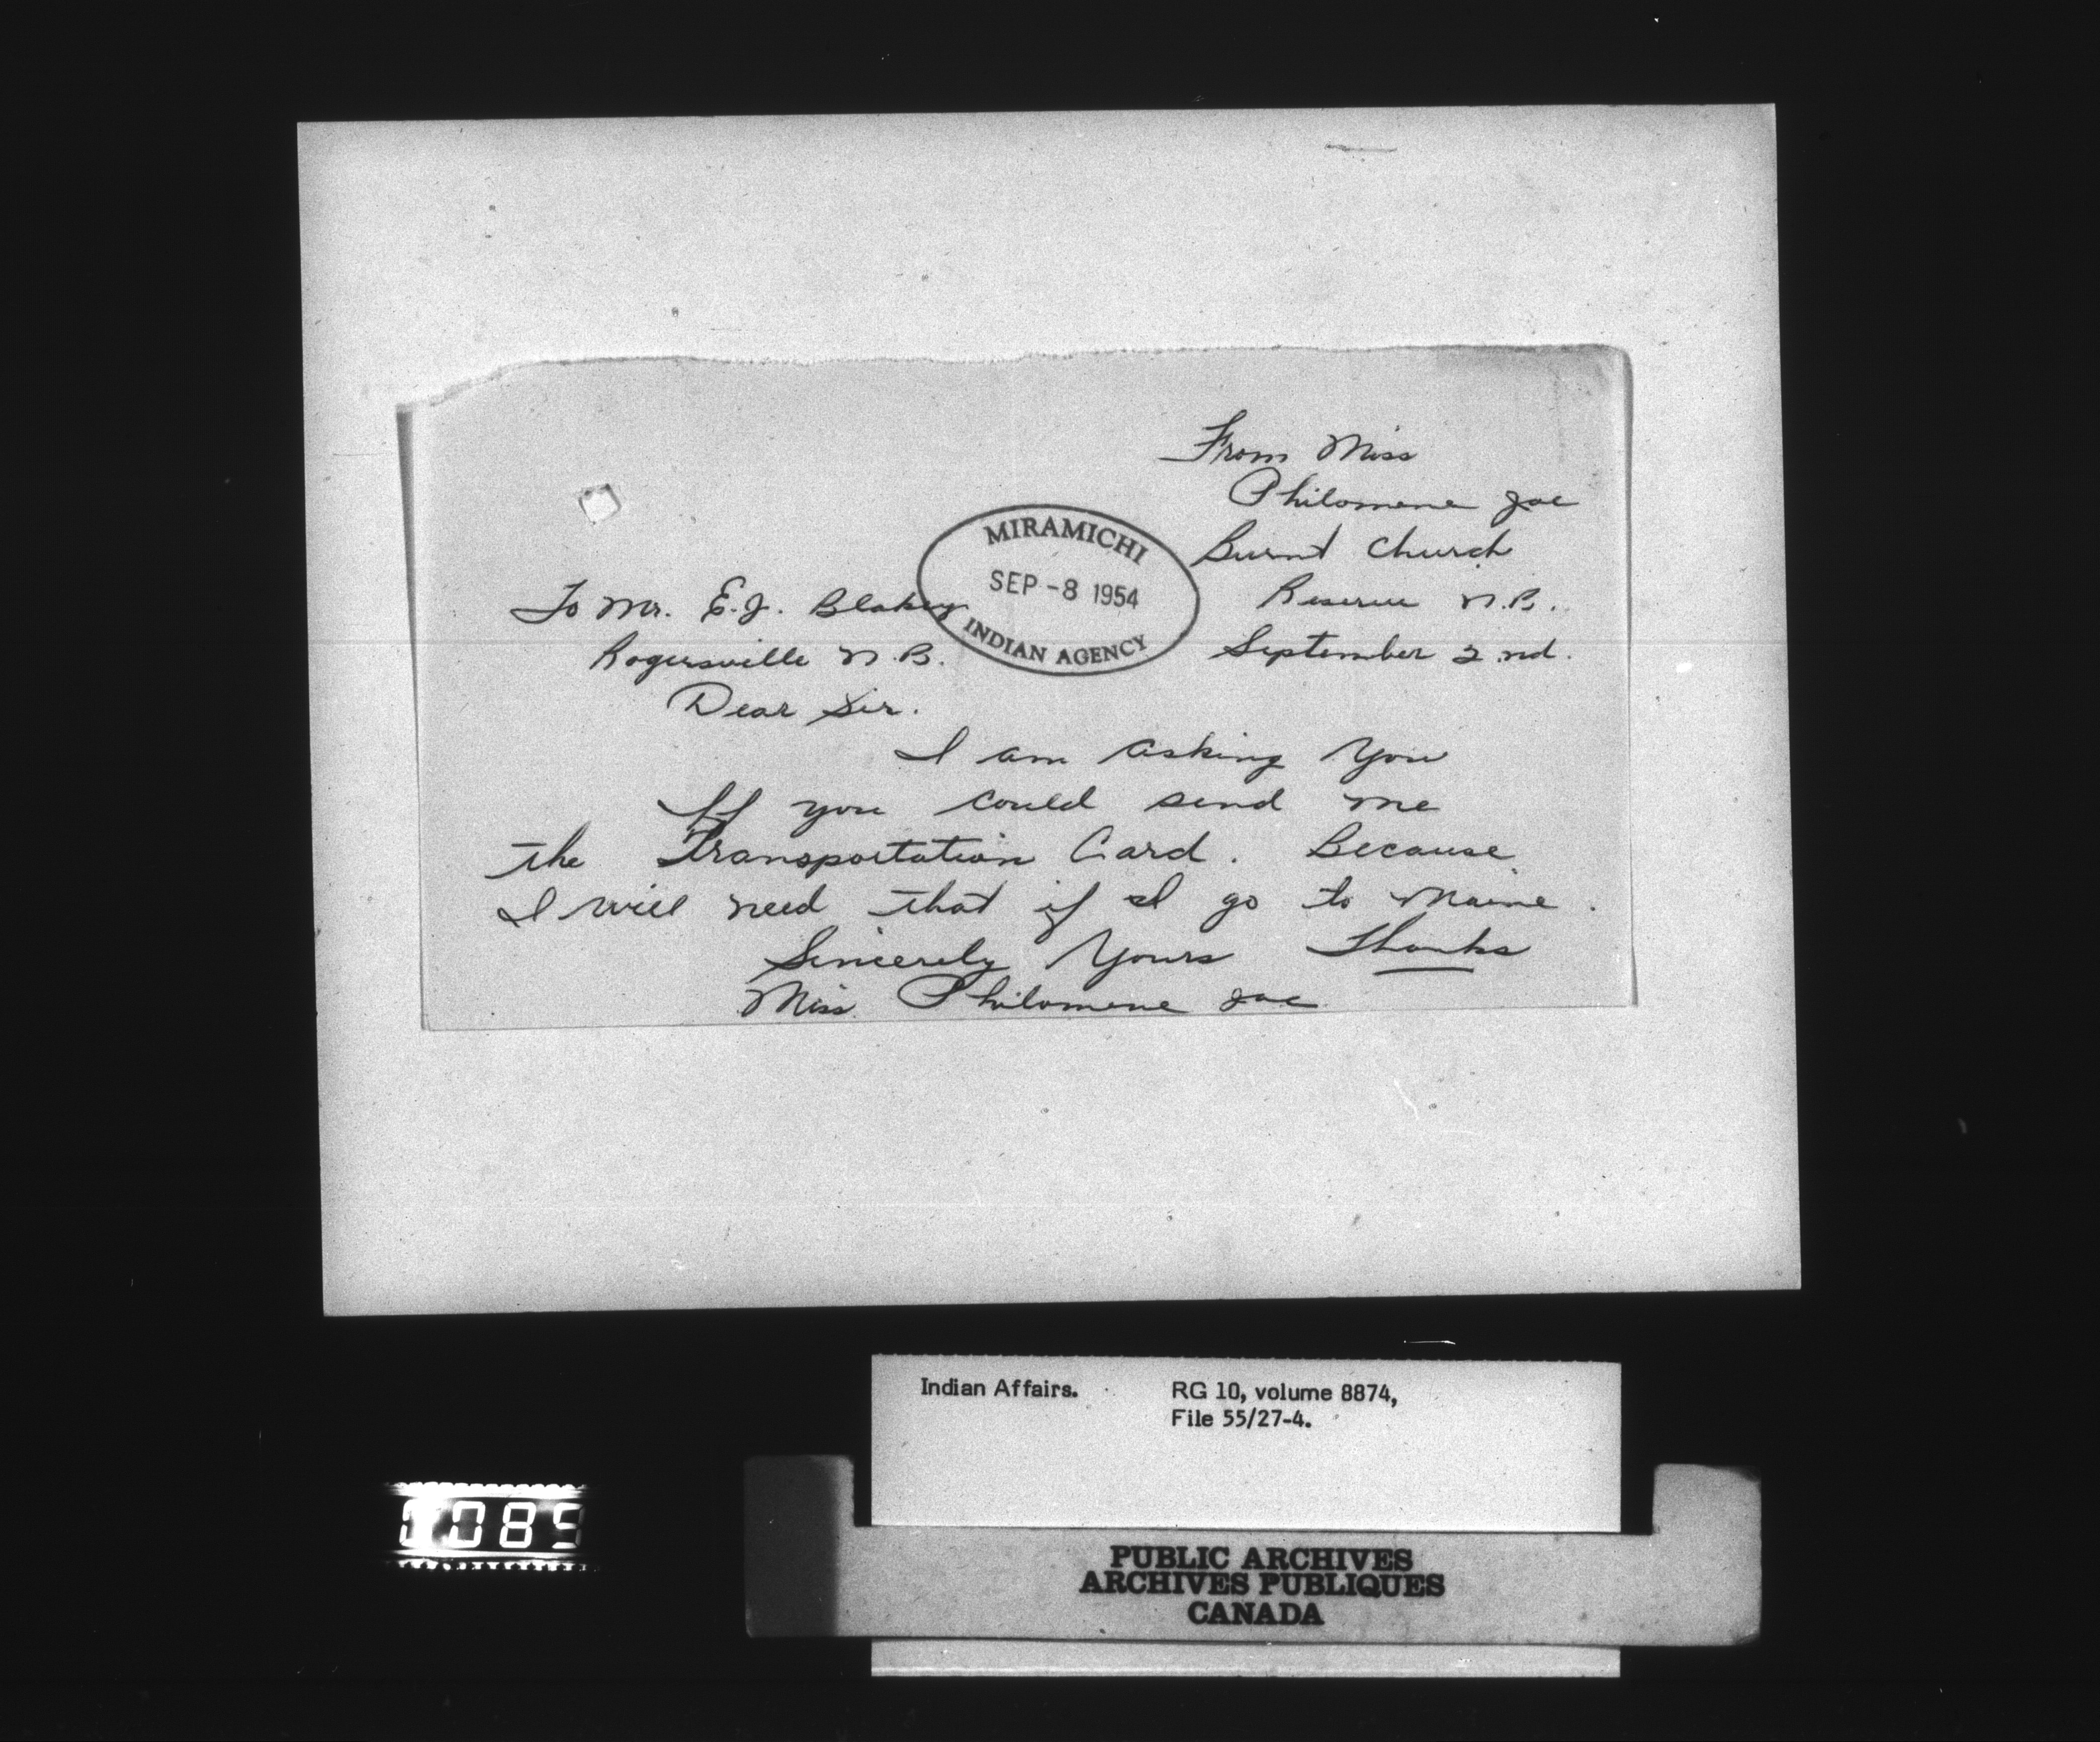 From Miss
Philomene Joe
Burnt Church
Reserve N.B.
September 2nd.
MIRAMICHI
SEP -8 1954
INDIAN AGENCY
To Mr. E.J. Blakey
Rogersville N.B.
Dear Sir.
I am asking You
If you could send me
the Transportation Card. Because
I will need that if I go to Maine.
Sincerely Yours Thanks
Miss Philomene Joe
Indian Affairs. RG 10, volume 8874,
File 55/27-4.
PUBLIC ARCHIVES
ARCHIVES PUBLIQUES
CANADA